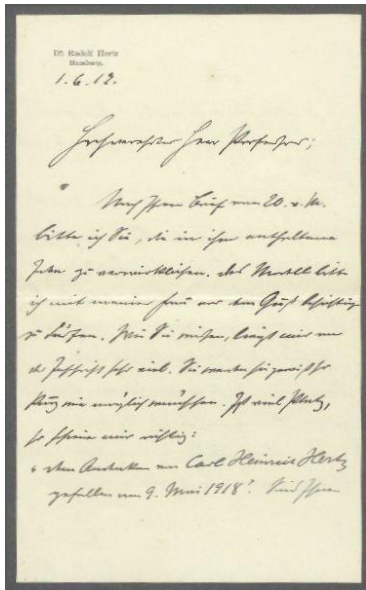 Dr. Rudolf Hertz
Hamburg.
1.6.19.
Hochverehrter Herr Professor;
Nach Ihrem Brief vom 20. v. M.
bitte ich Sie, die in ihm enthaltene
Idee zu verwirklichen. Das Modell bitte
ich mit meiner Frau vor dem Guß besichtigen
zu dürfen. Wie Sie wissen, liegt mir an
der Inschrift sehr viel. Sie werden sie gewiß so
klug wie möglich
so schiene mir richtig:
" dem Andenken an Carl Heinrich Hertz
gefallen am 9. Mai 1918". Sind Ihnen